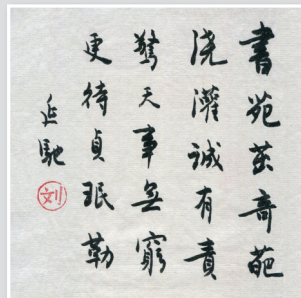 書苑茁奇葩
澆灌誠有責
驚天事無窮
更待貞珉勒
延馳
刘